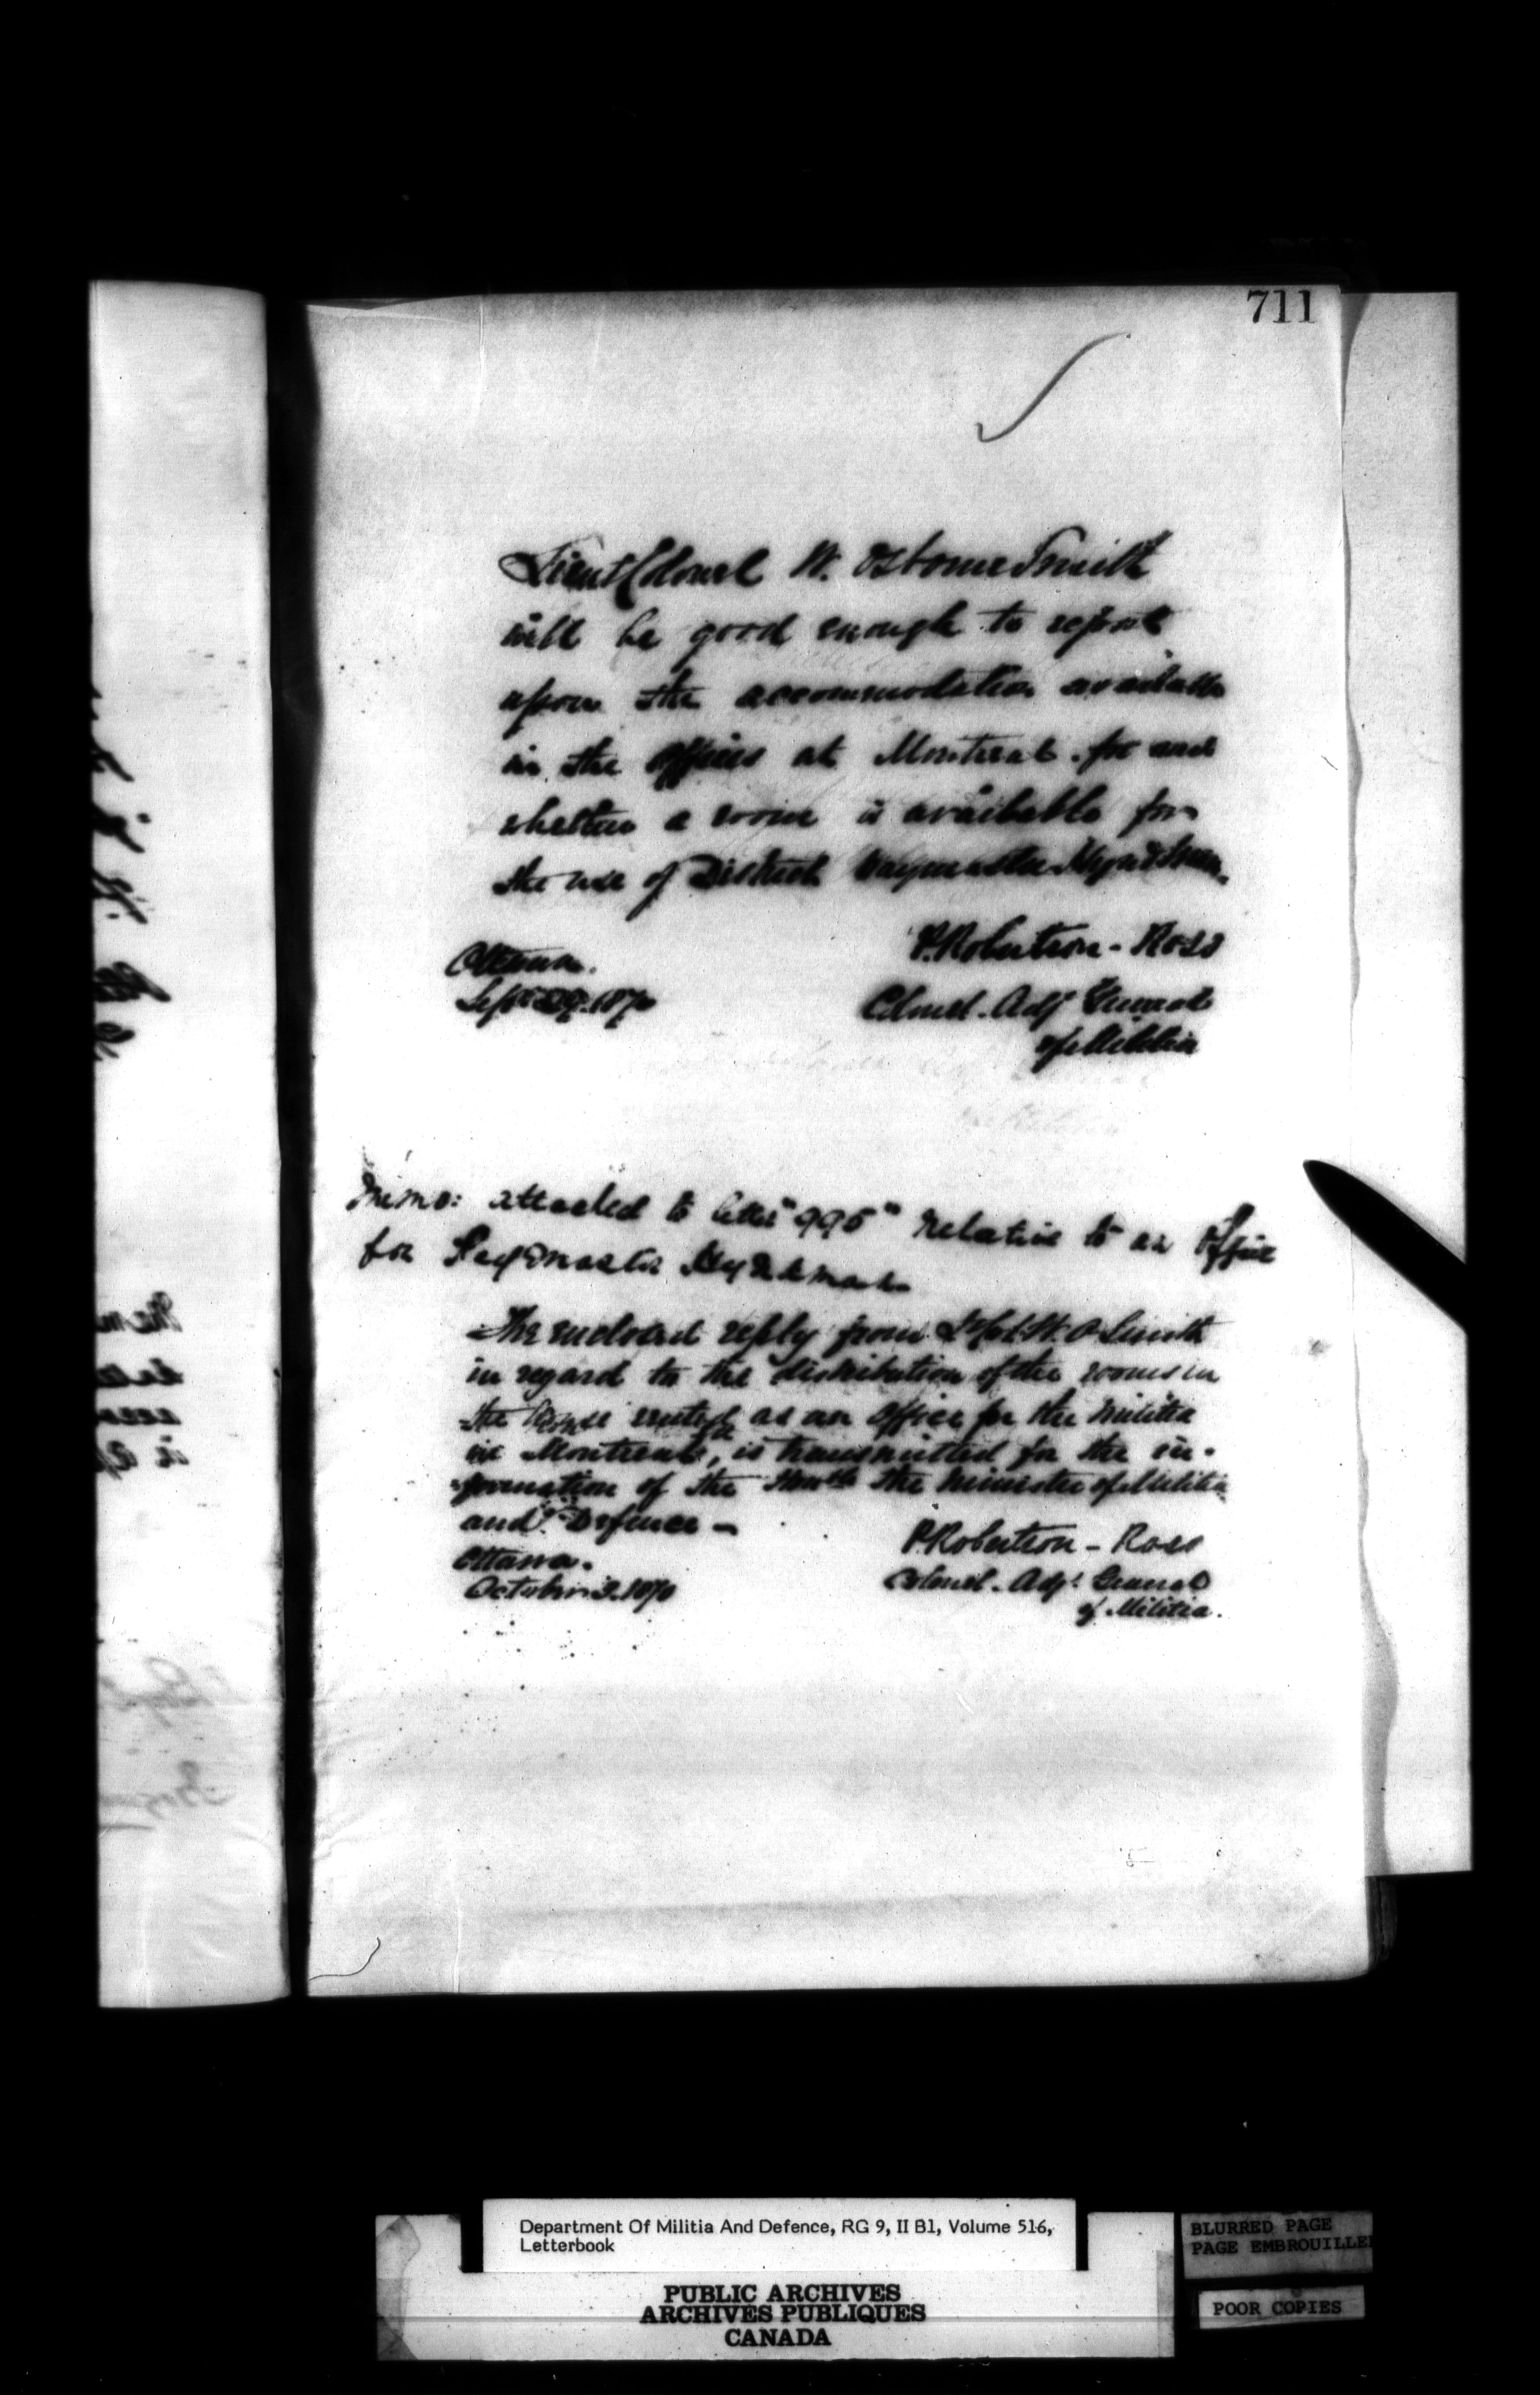 711
Lieut Colonel W. Osborne Smith
will be good enough to report
upon the accommodation available
in the offices at Montreal for and
whether a room is available for
the use of District Paymaster
P. Robertson - Ross
Ottawa.
Colonel. Adjt General
Sept 1870
of Militia
Memo: attached to letter "995" relative to an office
for Paymaster
The enclosed reply from Lt Col. W. O Smith
in regard to the distribution of the rooms in
the house rented as an office for the Militia
in Montreal, is transmitted for the in-
formation of the Honble the Minister of Militia
and Defence -
P. Robertson - Ross
Ottawa.
Colonel. Adjt General
October 3. 1870
of Militia.
Department Of Militia And Defence, RG 9, II B1, Volume 516,
Letterbook
BLURRED PAGE
PAGE EMBROUILLE
PUBLIC ARCHIVES
ARCHIVES PUBLIQUES
CANADA
POOR COPIES